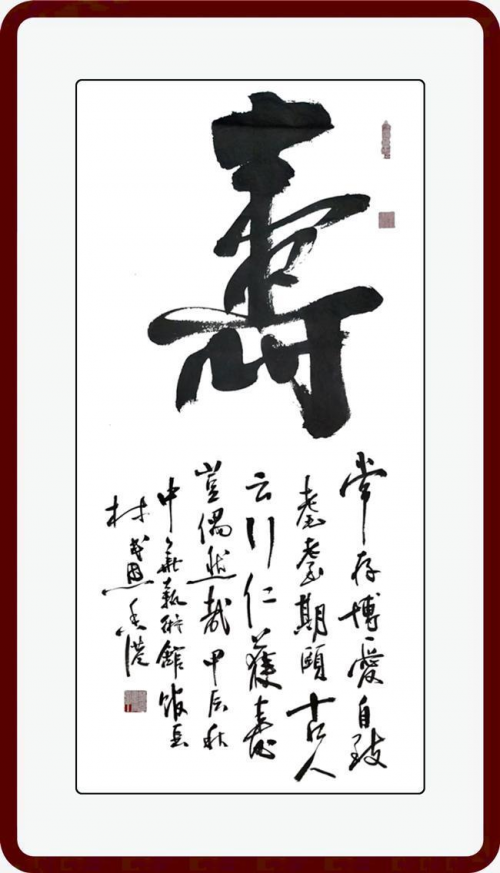 壽
常存博愛自致
耄耋期頤古人
云行仁獲壽
豈偶然哉甲辰秋
中藝術館
林香港